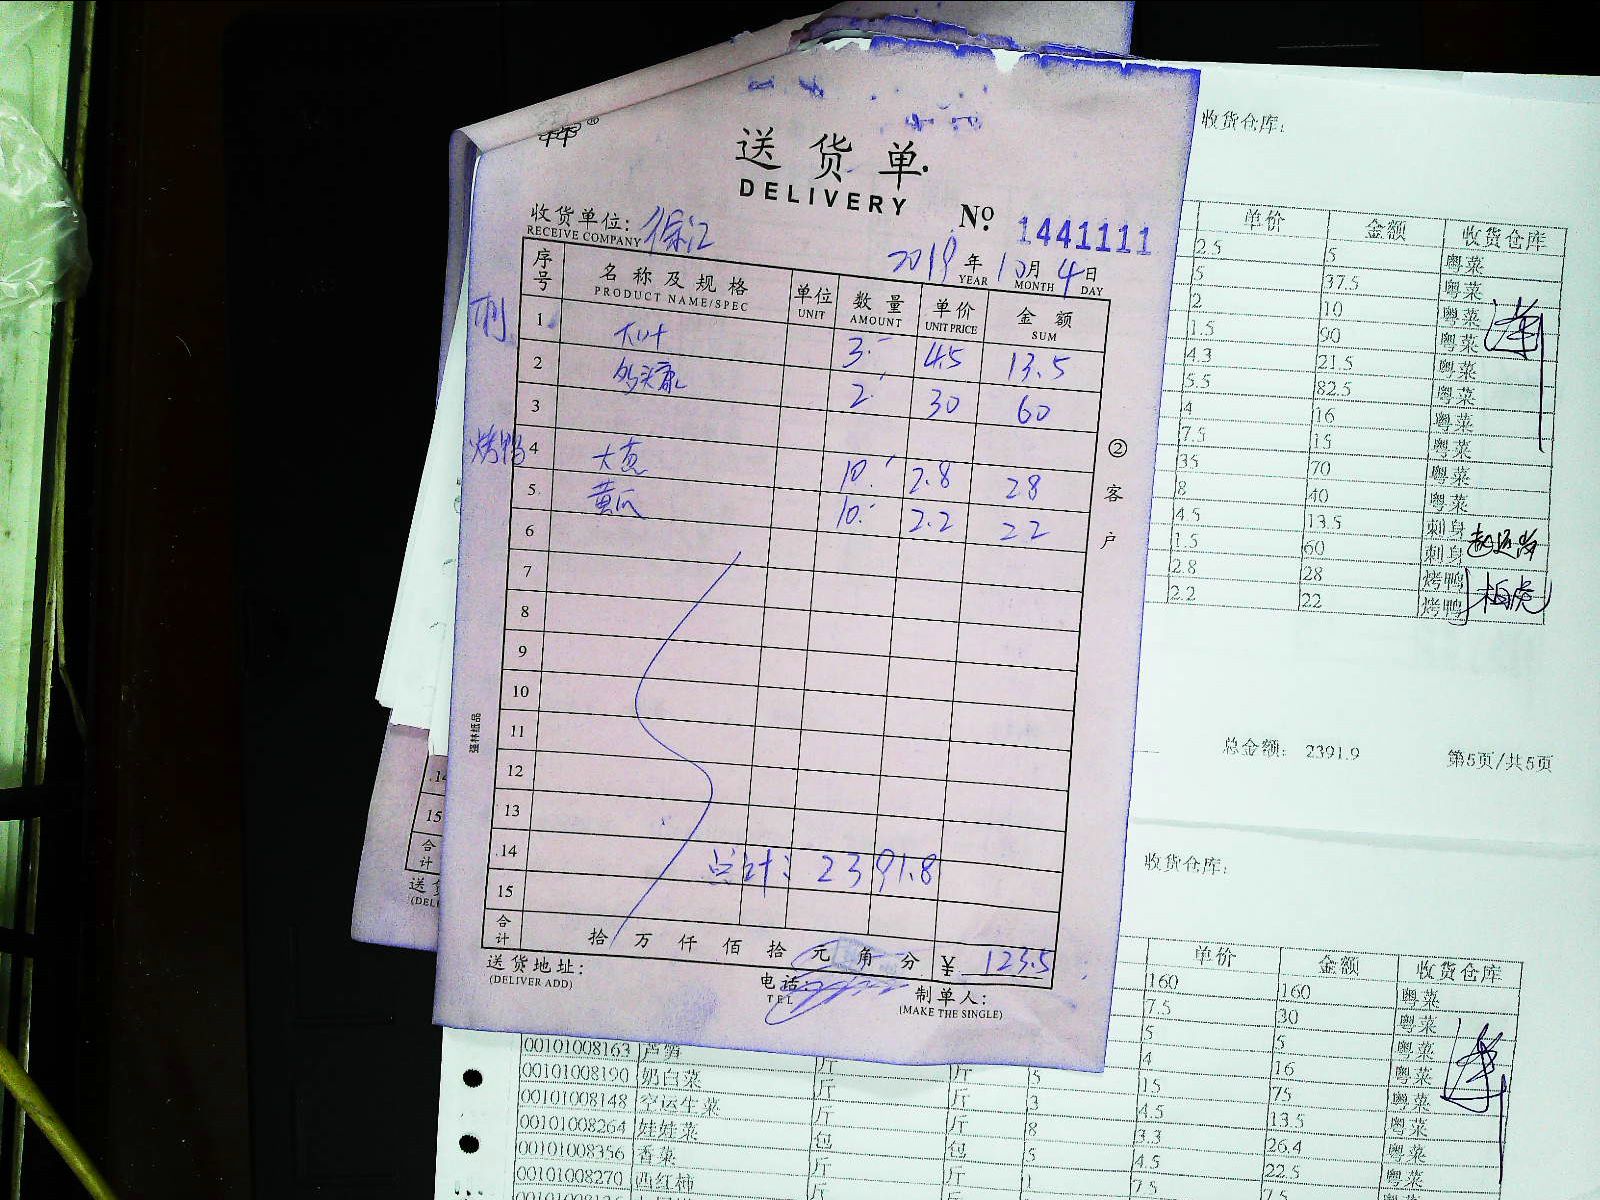 送货单
DELIVERY
№ 1441111
收货单位：徐汇
RECEIVE COMPANY
2019年10月4日
YEAR MONTH DAY
序号 名称及规格 单位 数量 单价 金额
PRODUCT NAME/SPEC UNIT AMOUNT UNIT PRICE SUM
刺 1 大叶 3 4.5 13.5
2 2 30 60
3
烤鸭 4 大葱 10 2.8 28
5 黄瓜 10 2.2 22
6
7
8
9
10
11
12
13
14 总计：2391.8
15
合计 拾万仟佰拾元角分 ¥ 123.5
送货地址：
(DELIVER ADD)
电话：
TEL
制单人：
(MAKE THE SINGLE)
②客户
强林纸品
14
15
合计
收货仓库：
单价 金额 收货仓库
2.5 5 粤菜
5 37.5 粤菜
2 10 粤菜
1.5 90 粤菜
4.3 21.5 粤菜
5.5 82.5 粤菜
4 16 粤菜
7.5 15 粤菜
35 70 粤菜
8 40 粤菜
4.5 13.5 刺身
1.5 60 刺身
2.8 28 烤鸭
2.2 22 烤鸭
总金额： 2391.9 第5页/共5页
收货仓库：
单价 金额 收货仓库
160 160 粤菜
7.5 30 粤菜
00101008163 芦笋 斤 斤 5 5 粤菜
00101008190 奶白菜 斤 斤 5 4 16 粤菜
00101008148 空运生菜 斤 斤 3 15 75 粤菜
00101008264 娃娃菜 包 包 8 4.5 13.5 粤菜
00101008356 香菜 斤 斤 5 3.3 26.4 粤菜
00101008270 西红柿 斤 斤 1 4.5 22.5 粤菜
7.5 7.5